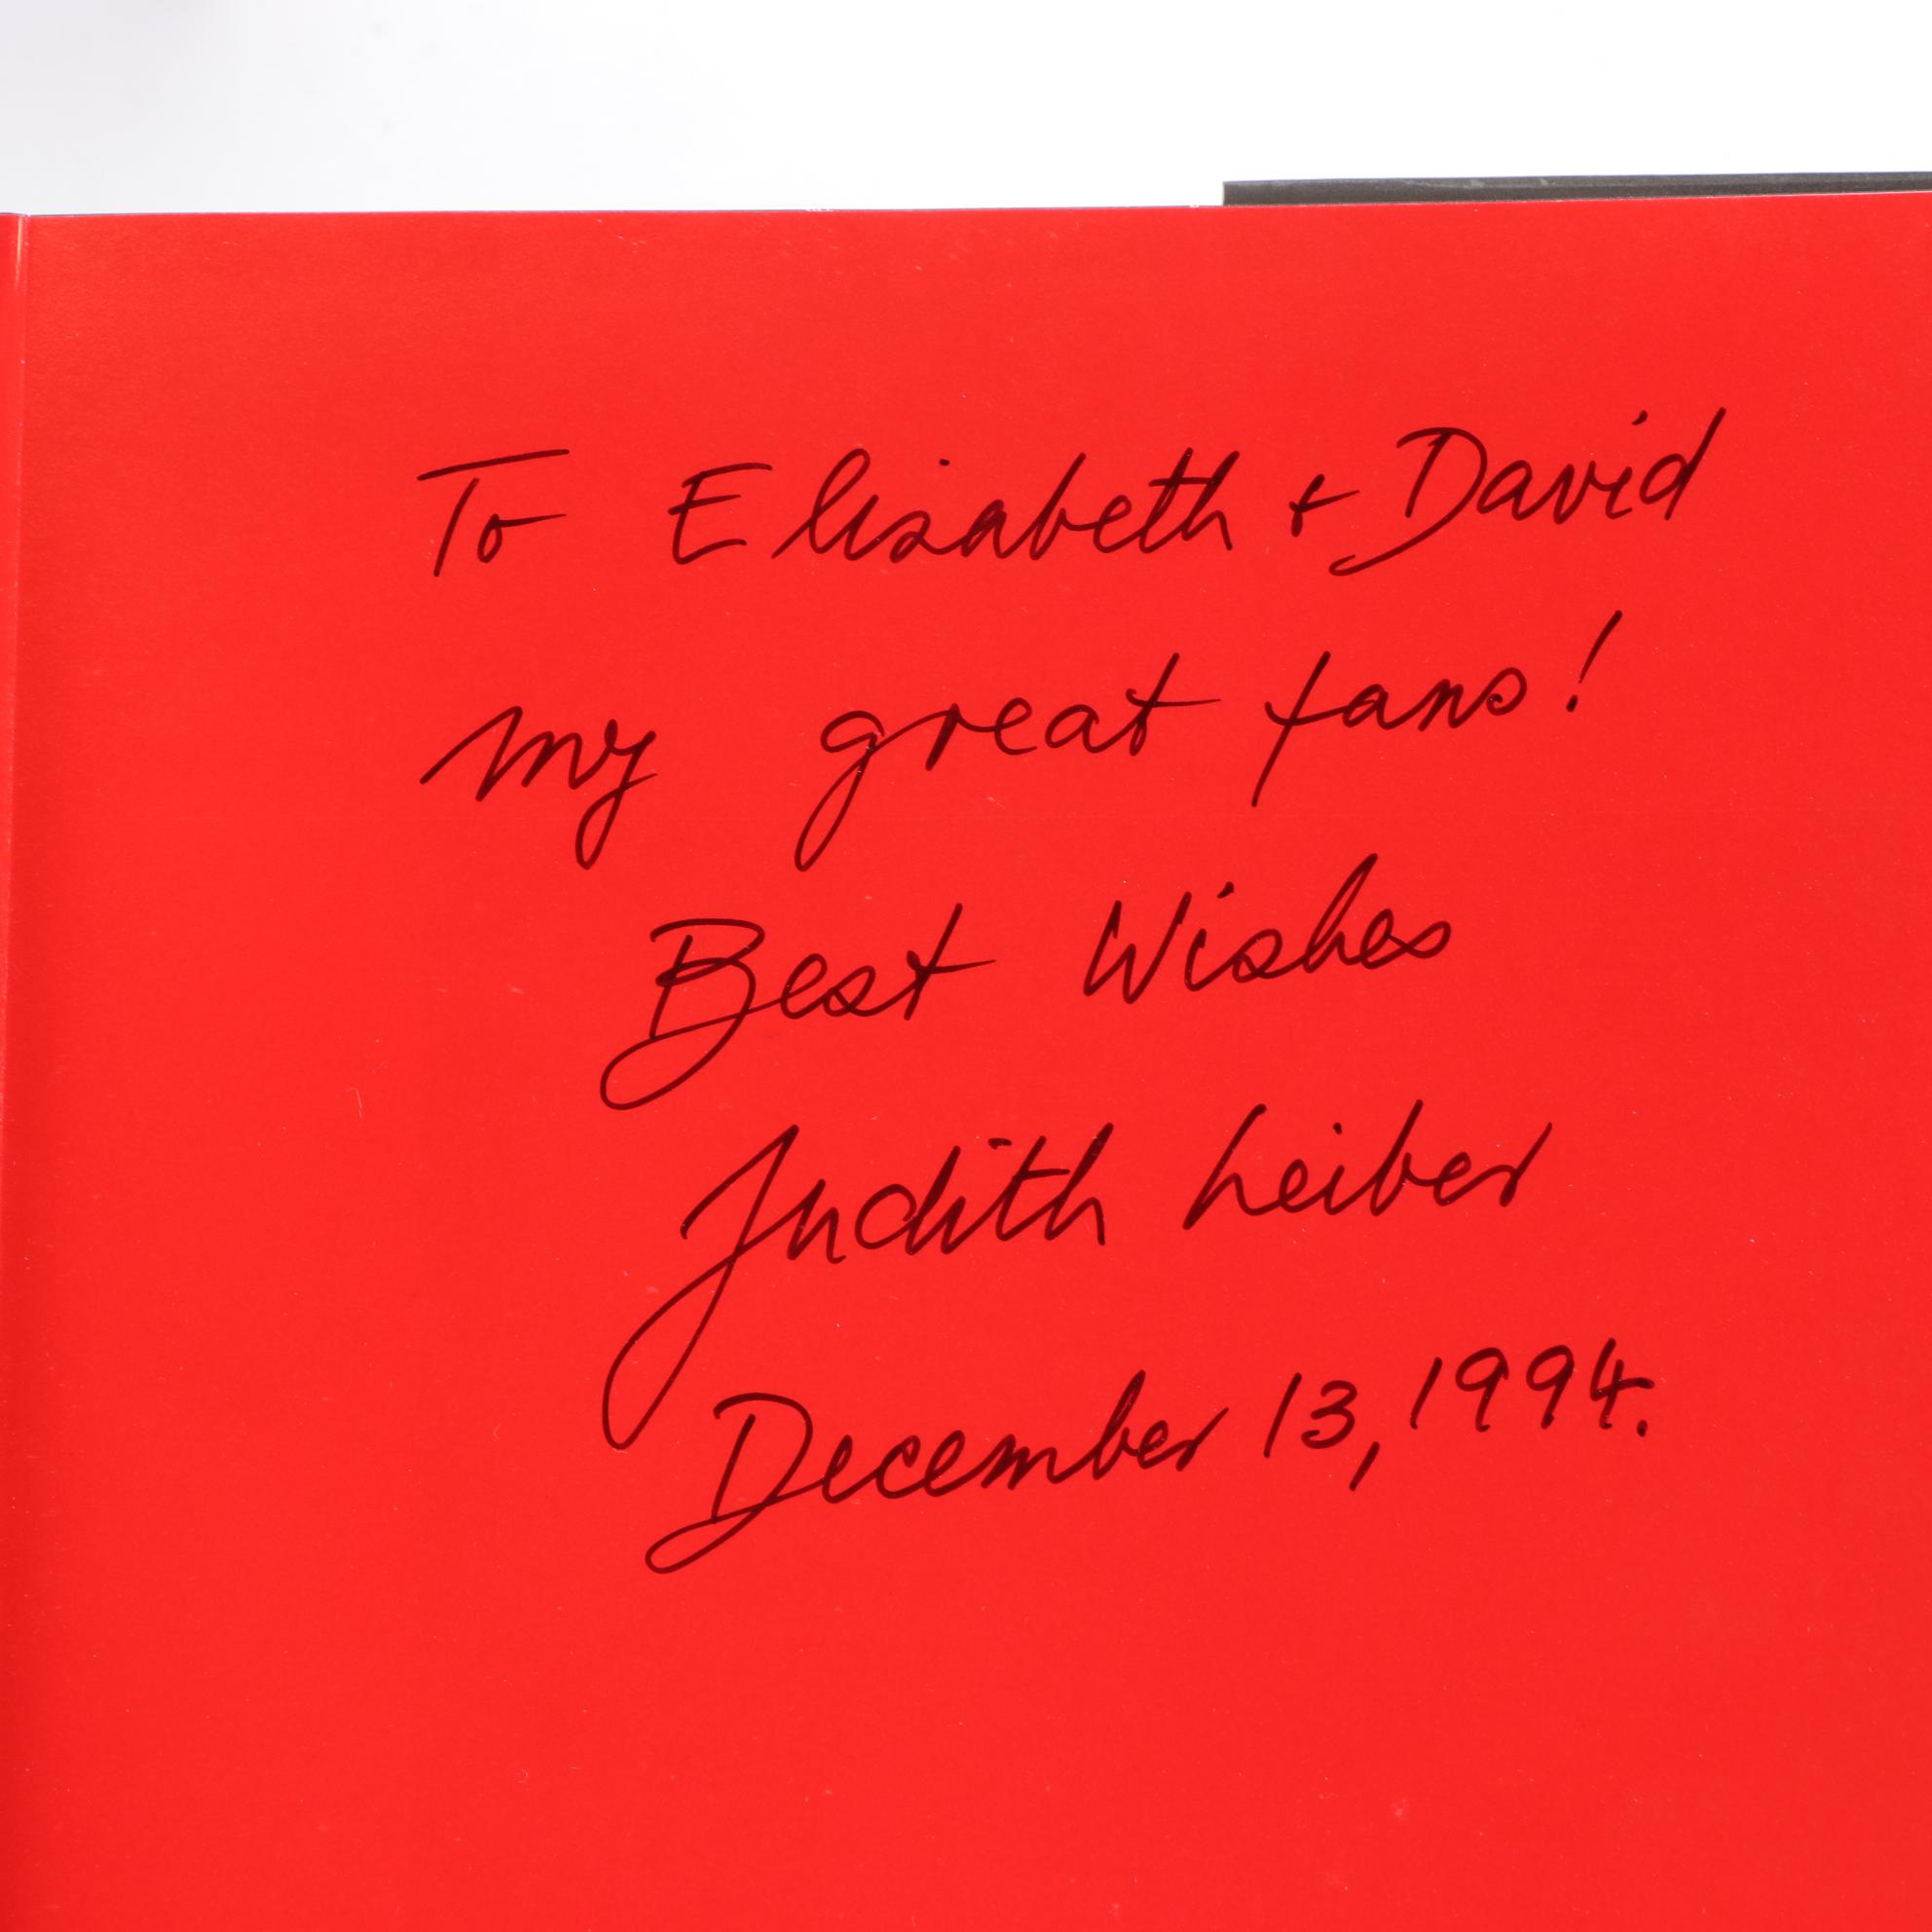 To Elisabeth + David
my great fans!
Best Wishes
Judith Leiber
December 13, 1994.